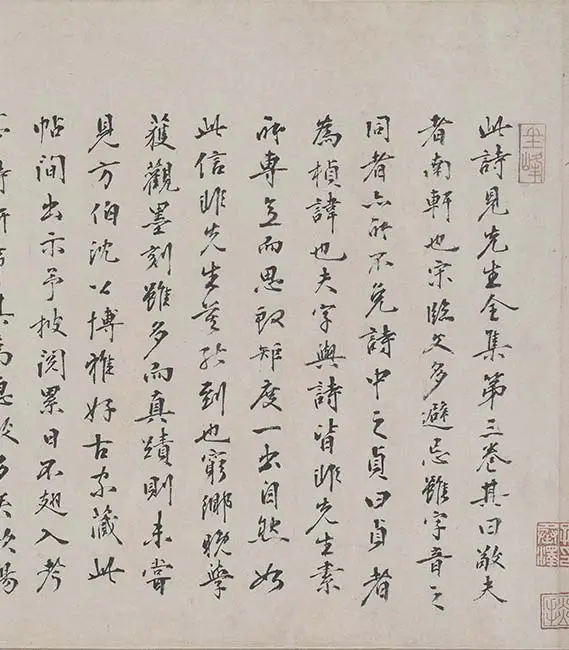 此詩見先生全集第三卷其曰敬夫
者南軒也宋臨文多避忌雖字音之
同者亦所不免詩中之貞曰貞者
為禎諱也夫字與詩皆非先生素
所專意而思致矩度一出自然如
此信非先生莫能到也窮鄉晚學
獲觀墨刻雖多而真蹟則未嘗
見方伯沈公博雅好古家藏此
帖間出示予披閱累日不翅入考